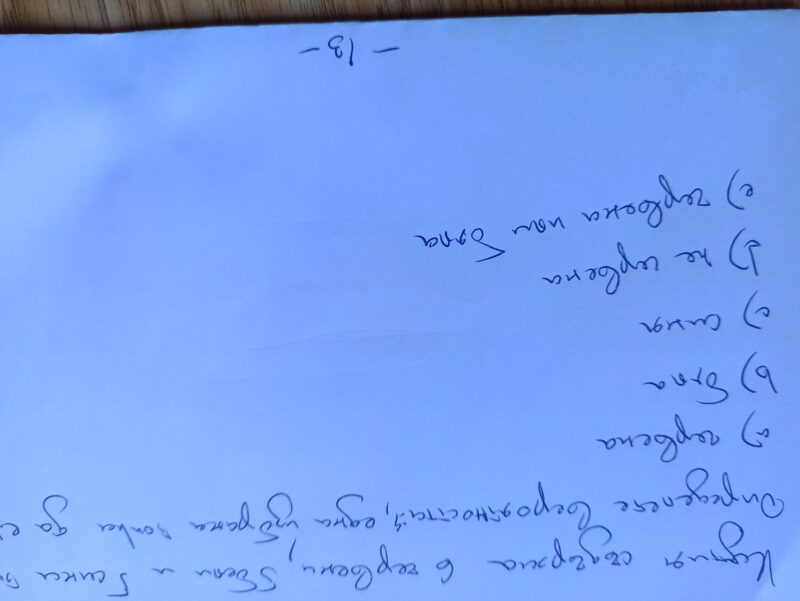 Кутия съдържа 6 червени, 5 бели и 5 сини
Определете вероятността, една избрана топка да е
a) червена
b) бяла
c) синя
d) не червена
e) червена или бяла
- 13 -